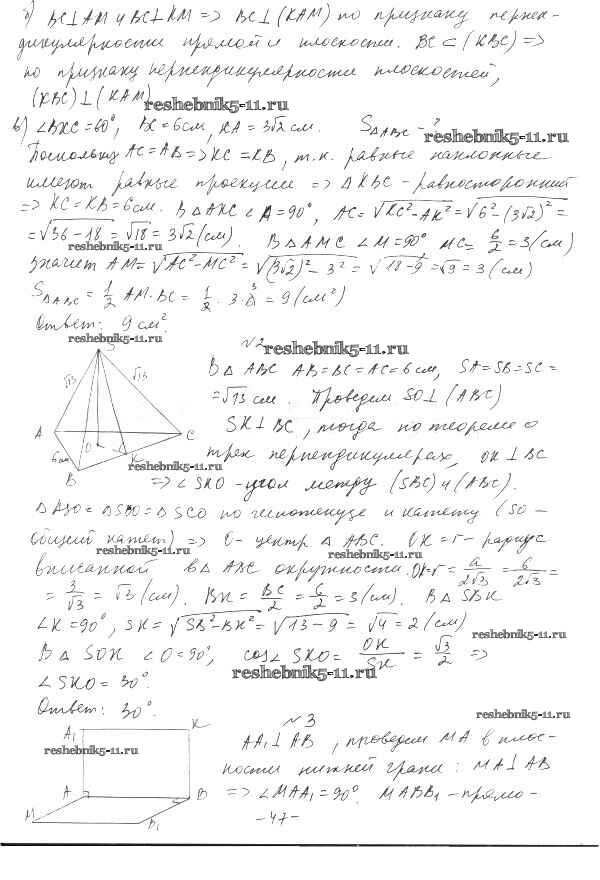 б) BC⊥AM и BC⊥KM => BC⊥(KAM) по признаку перпен-
дикулярности прямой и плоскости. BC⊂(KBC) =>
по признаку перпендикулярности плоскостей,
(KBC)⊥(KAM)
reshebnik5-11.ru
в) ∠BKC=60°, BK=6см, KA=3√2см. S△ABC - ?
reshebnik5-11.ru
Поскольку AC=AB=>KC=KB, т.к. равные наклонные
имеют равные проекции => △KBC - равносторонний
=> KC=KB=6см. В △AKC ∠A=90°, AC=√KC²-AK²=√6²-(3√2)²=
=√36-18=√18=3√2(см). В △AMC ∠M=90° MC=6/2=3(см)
reshebnik5-11.ru
значит AM=√AC²-MC²=√(3√2)²-3²=√18-9=√9=3(см)
S△ABC=1/2 AM·BC=1/2·3·6 3=9(см²)
Ответ: 9см².
reshebnik5-11.ru
№2
reshebnik5-11.ru
S
√13
√13
A
C
O
K
6см
B
reshebnik5-11.ru
В △ABC AB=BC=AC=6см, SA=SB=SC=
=√13см. Проведем SO⊥(ABC)
SK⊥BC, тогда по теореме о
трех перпендикулярах, OK⊥BC
=> ∠SKO - угол между (SBC) и (ABC).
△ASO=△SBO=△SCO по гипотенузе и катету (SO -
общий катет) => O - центр △ABC. OK=r - радиус
reshebnik5-11.ru
reshebnik5-11.ru
вписанной в △ABC окружности. OK=r=a/2√3=6/2√3=
=3/√3=√3(см). BK=BC/2=6/2=3(см). В △SBK
∠K=90°, SK=√SB²-BK²=√13-9=√4=2(см)
reshebnik5-11.ru
В △SOK ∠O=90°, cos∠SKO=OK/SK=√3/2 =>
reshebnik5-11.ru
∠SKO=30°.
Ответ: 30°.
№3
reshebnik5-11.ru
A₁
K
reshebnik5-11.ru
A
B
M
B₁
AA₁⊥AB, проведем MA в плос-
кости нижней грани: MA⊥AB
=> ∠MAA₁=90°. MABB₁ - прямо-
-47-